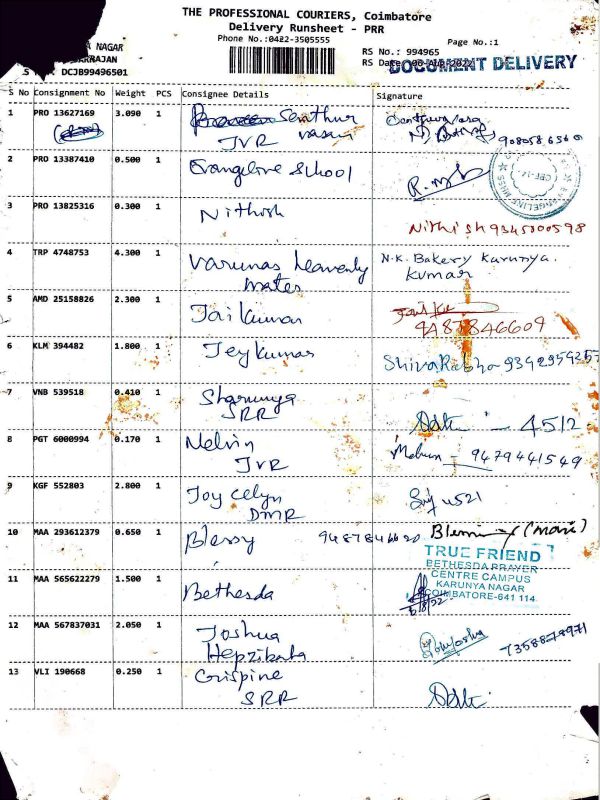 THE PROFESSIONAL COURIERS, Coimbatore
Delivery Runsheet - PRR
Phone No.:0422-3505555
Page No.:1
NAGAR
RS No.: 994965
RS Date
DOCUMENT DELIVERY
DCJB99496501
S No Consignment No Weight PCS Consignee Details Signature
1 PRO 13627169 3.090 1 Senthur
JVR
2 PRO 13387410 0.500 1 Evangeline School
3 PRO 13825316 0.300 1 Nithish
Nithish 9345000598
4 TRP 4748753 4.300 1 Varunas heavenly N.K. Bakery Karunya.
mates Kumar
5 AMD 25158826 2.300 1 Jaikumar
9487846609
6 KLM 394482 1.800 1 Jeykumar
7 VNB 539518 0.410 1 Sharunya
SRR 4512
8 PGT 6000994 0.170 1 Melvin 9479441549
JVR
9 KGF 552803 2.800 1 Joy Celyn 4521
DMR
10 MAA 293612379 0.650 1 Blessy 9487846620
TRUE FRIEND
BETHESDA PRAYER
CENTRE CAMPUS
KARUNYA NAGAR
COIMBATORE-641 114
11 MAA 565622279 1.500 1 Bethesda
12 MAA 567837031 2.050 1 Joshua
Hepzibah
13 VLI 190668 0.250 1 Crispine
SRR